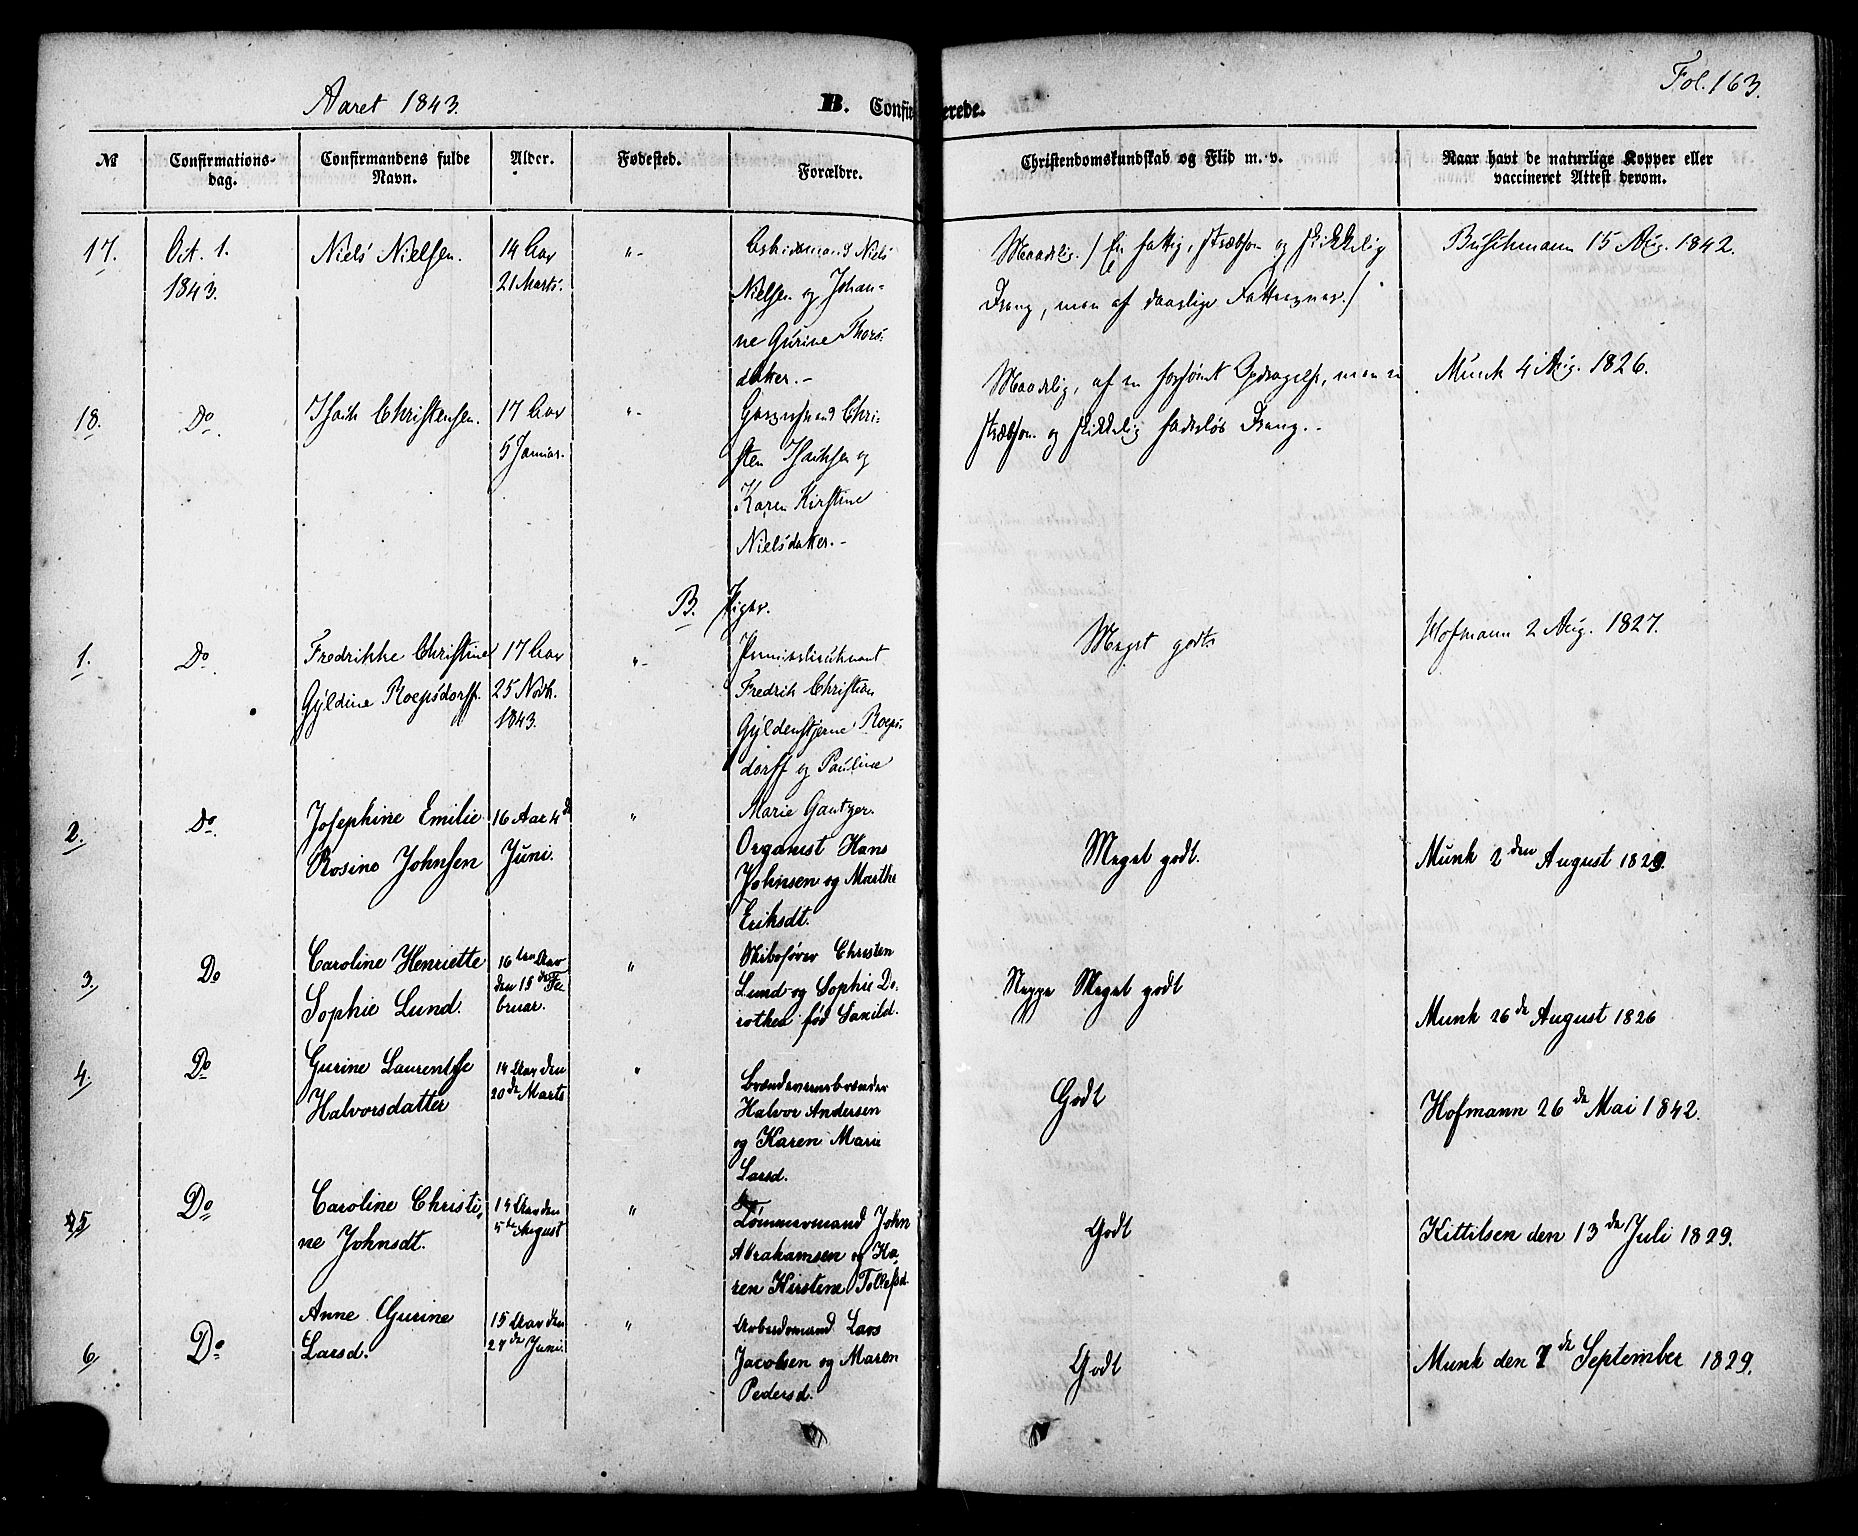 Fol. 163.
Aaret 1843.
B. Confir erede.
№
Confirmations-
dag.
Confirmandens fulde
Navn.
Alder.
Fødested.
Forældre.
Christendomskundskab og Flid m. v.
Naar havt de naturlige Kopper eller
vaccineret Attest derom.
17.
Oct. 1.
1843.
Niels Nielsen.
14 Aar
21 Marts.
"-
Arbeidsmand Niels
Nielsen og Johan-
ne Gurine Thors-
datter.-
Maadelig. / En fattig, stræbsom og skikkelig
Dreng, men af daarlige Fatteevner. /
Buschmann 15 Aug. 1842.
18.
Do
Isach Christensen.
17 Aar
5 Januar.
"-
Chri-
sten Isachsen og
Karen Kirstine
Nielsdatter.-
Maadelig, af en forsømt Opdragelse, men en
stræbsom og skikkelig faderløs Dreng.-
Munch 4 Aug. 1826.
B. Piger.
1.
Do
Fredrikke Christine
Gyldine Roepsdorff.
17 Aar
25 Novb.
1843.
"-
Premierlieutenant
Fredrik Christian
Gyldenstjerne Roeps-
dorff og Pauline
Marie Gantzer.
Meget godt
Hofmann 2 Aug. 1827.
2.
Do
Josephine Emilie
Rosine Johnsen
16 Aar 4de
Juni.
"
Organist Hans
Johnsen og Marthe
Eriksdt.
Meget godt.
Munk 2den August 1829.
3.
Do
Caroline Henriette
Sophie Lund.
16 Aar
den 15de Fe-
bruar.
"
Skibsfører Christen
Lund og Sophie Do-
rothea fød Sanild.
Neppe Meget godt
Munk 26de August 1826
4.
Do
Gurine Laurentse
Halvorsdatter
14 Aar den
20de Marts
"
Brændeviinsbrænder
Halvor Andersen
og Karen Marie
Larsd.
Godt
Hofmann 26de Mai 1842.
5
Do
Caroline Christi-
ne Johnsdt.
14 Aar den
5te August
"
Tømmermand John
Abrahamsen og Ka-
ren Kirstine Tollefsd.
Godt
Kittilsen den 13de Juli 1829.
6
Do
Anne Gurine
Larsd.
15 Aar den
27de Juni.
"
Arbeidsmand Lars
Jacobsen og Maren
Pedersd.
Godt
Munk den 7de September 1829.